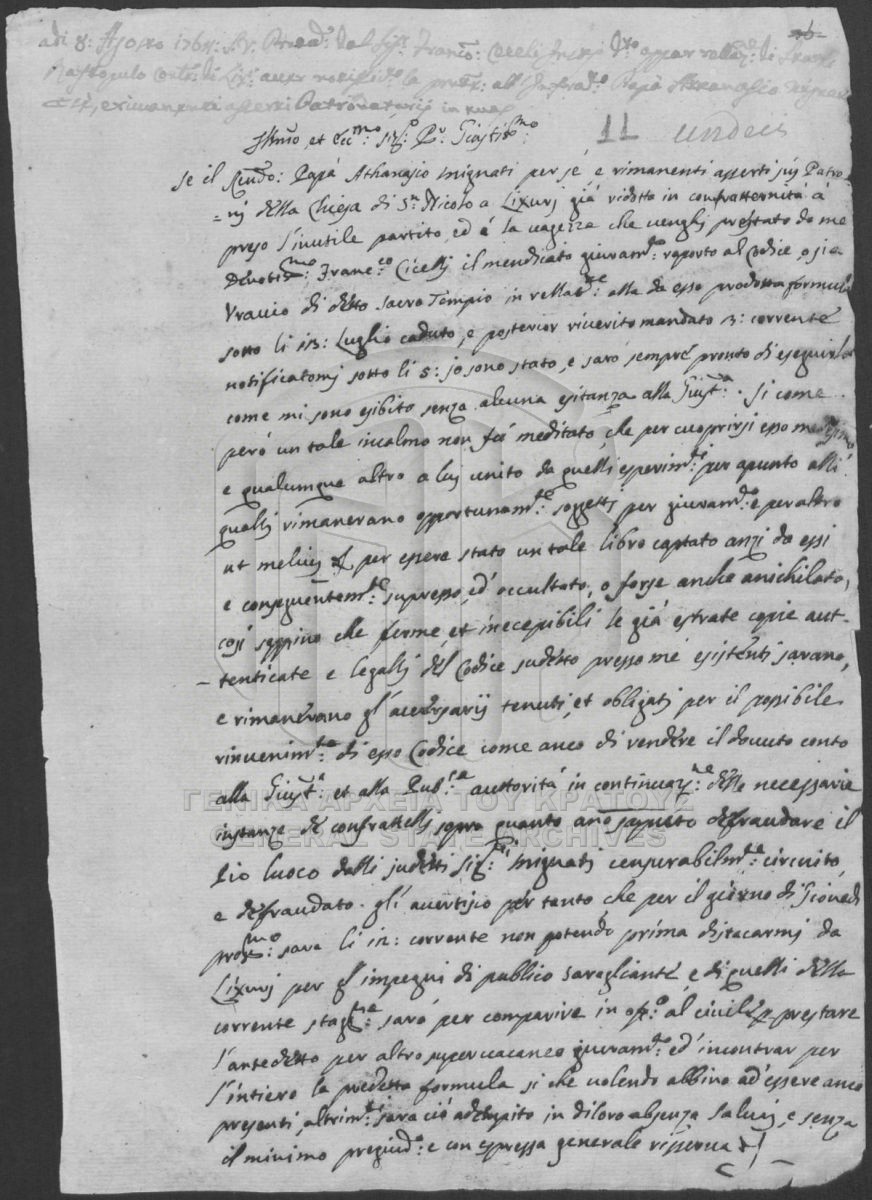 adi 8: Agosto 1764: S.V. Presen.ta dal Sig.r Franco: Cicelli
Rastopulo Cont. di notifich.o la pnte: all' Infrad.o Papà Attanasio Mignati
et rimanenti asserti Patronatarij in
11 undeci
Illmo et Ecc.mo Sig.r Pr. Giustis.mo
Se il Rendo: Papà Athanasio Mignati per sè e rimanenti asserti suj Patro-
=nj della Chiesa di S.n Nicolò a Lixurj già ridotta in confratternità à
preso l'inutile partito, ed à la vagezza che venghj prestato da me
Devotis.mo Franc.co Cicellj il mendicato giuram.to raporto al Codice, o sia
Vrachio di detto Sacro Tempio in rellat.ne alla da esso prodotta formula
sotto li 13: Luglio caduto, e posterior riverito mandato 3: corrente
notificatomj sotto li 5: jo sono stato, e sarò sempre pronto di eseguirlo
come mi sono esibito senza alcuna esitanza alla Giust.a. Si come
però un tale incalmo non fù meditato, che per cuoprirsi esso medesimo
e qualumque altro a luj unito da quelli esperim.ti per apunto alli
qualli rimanerano opportunam.te soggetti per giuram.to e per altro
ut melius & per essere stato un tale libro captato anzi da essi
e conseguentem.te supresso, ed' occultato, o forse anche anichilato,
così seppino che ferme, et inecepibili le già estrate copie aut-
tenticate e legallj del Codice sudetto presso me esistenti sarano,
e rimanerano gl'aversarij tenuti, et obligati per il possibile
rinvenim.to di esso Codice come anco di rendere il dovuto conto
alla Giust.a et alla Pub.ca auttorità in continuaz.ne delle necessarie
instanze de confrattelli sopra quanto ano saputo defraudare il
Pio luoco dalli sudetti Sig.ri Mignati censurabilm.te circuito,
e defraudato. gli avertisco per tanto, che per il giorno di Giovedì
pros.mo sarà li 12: corrente non potendo prima distacarmi da
Lixurj per gl'impegni di publico Saragliante, e di quelli della
corrente stag.ne sarò per comparire in off.o al civile, e prestare
l'antedetto per altro supervacaneo giuram.to ed' incontrar per
l'intiero la predetta formula si che volendo abbino ad' essere anco
presenti, altrim.ti sarà ciò adempito in di loro absenza Salvis, e senza
il minimo pregiud.o e con espressa generale risserva &
ΓΕΝΙΚΑ ΑΡΧΕΙΑ ΤΟΥ ΚΡΑΤΟΥΣ
GENERAL STATE ARCHIVES